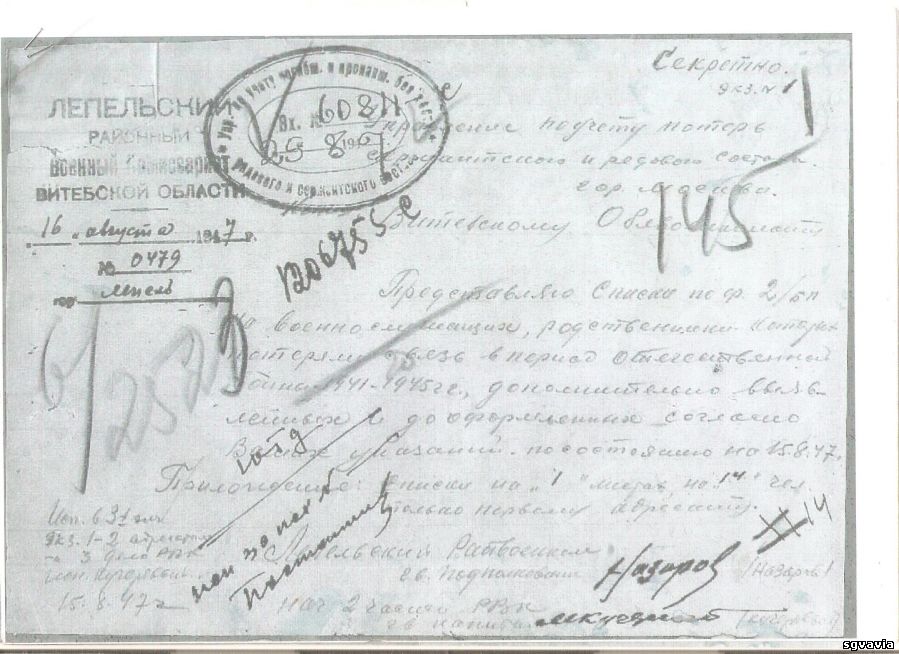 Секретно.
экз. № 1
ЛЕПЕЛЬСКИЙ
РАЙОННЫЙ
Военный Комиссариат
ВИТЕБСКОЙ ОБЛАСТИ
16 августа 1947 г.
№ 0479
гор. Лепель
Упр. по учету погибш. и пропавш. без вести
Вх. № 608
25 8 194
рядового и сержантского состава
по учету потерь
сержантского и рядового состава.
гор. Москва.
Витебскому Облвоенкомату
145
120675
Представляю Списки по ф. 2/бп
на военнослужащих, родственники которых
потеряли связь в период Отечественной
войны 1941-1945 гг., дополнительно выяв-
ленных и дооформленных согласно
Ваших указаний по состоянию на 15.8.47.
Приложение: списки на "1" листах, на "14" чел.
только первому адресату.
Исп. в 3х экз
Экз. 1-2 адресатам
3 дело РВК
15.8.47г
Лепельский Райвоенком
гв. подполковник Назаров /Назаров/
Нач 2 части РВК
гв. капитан
14
sgvavia